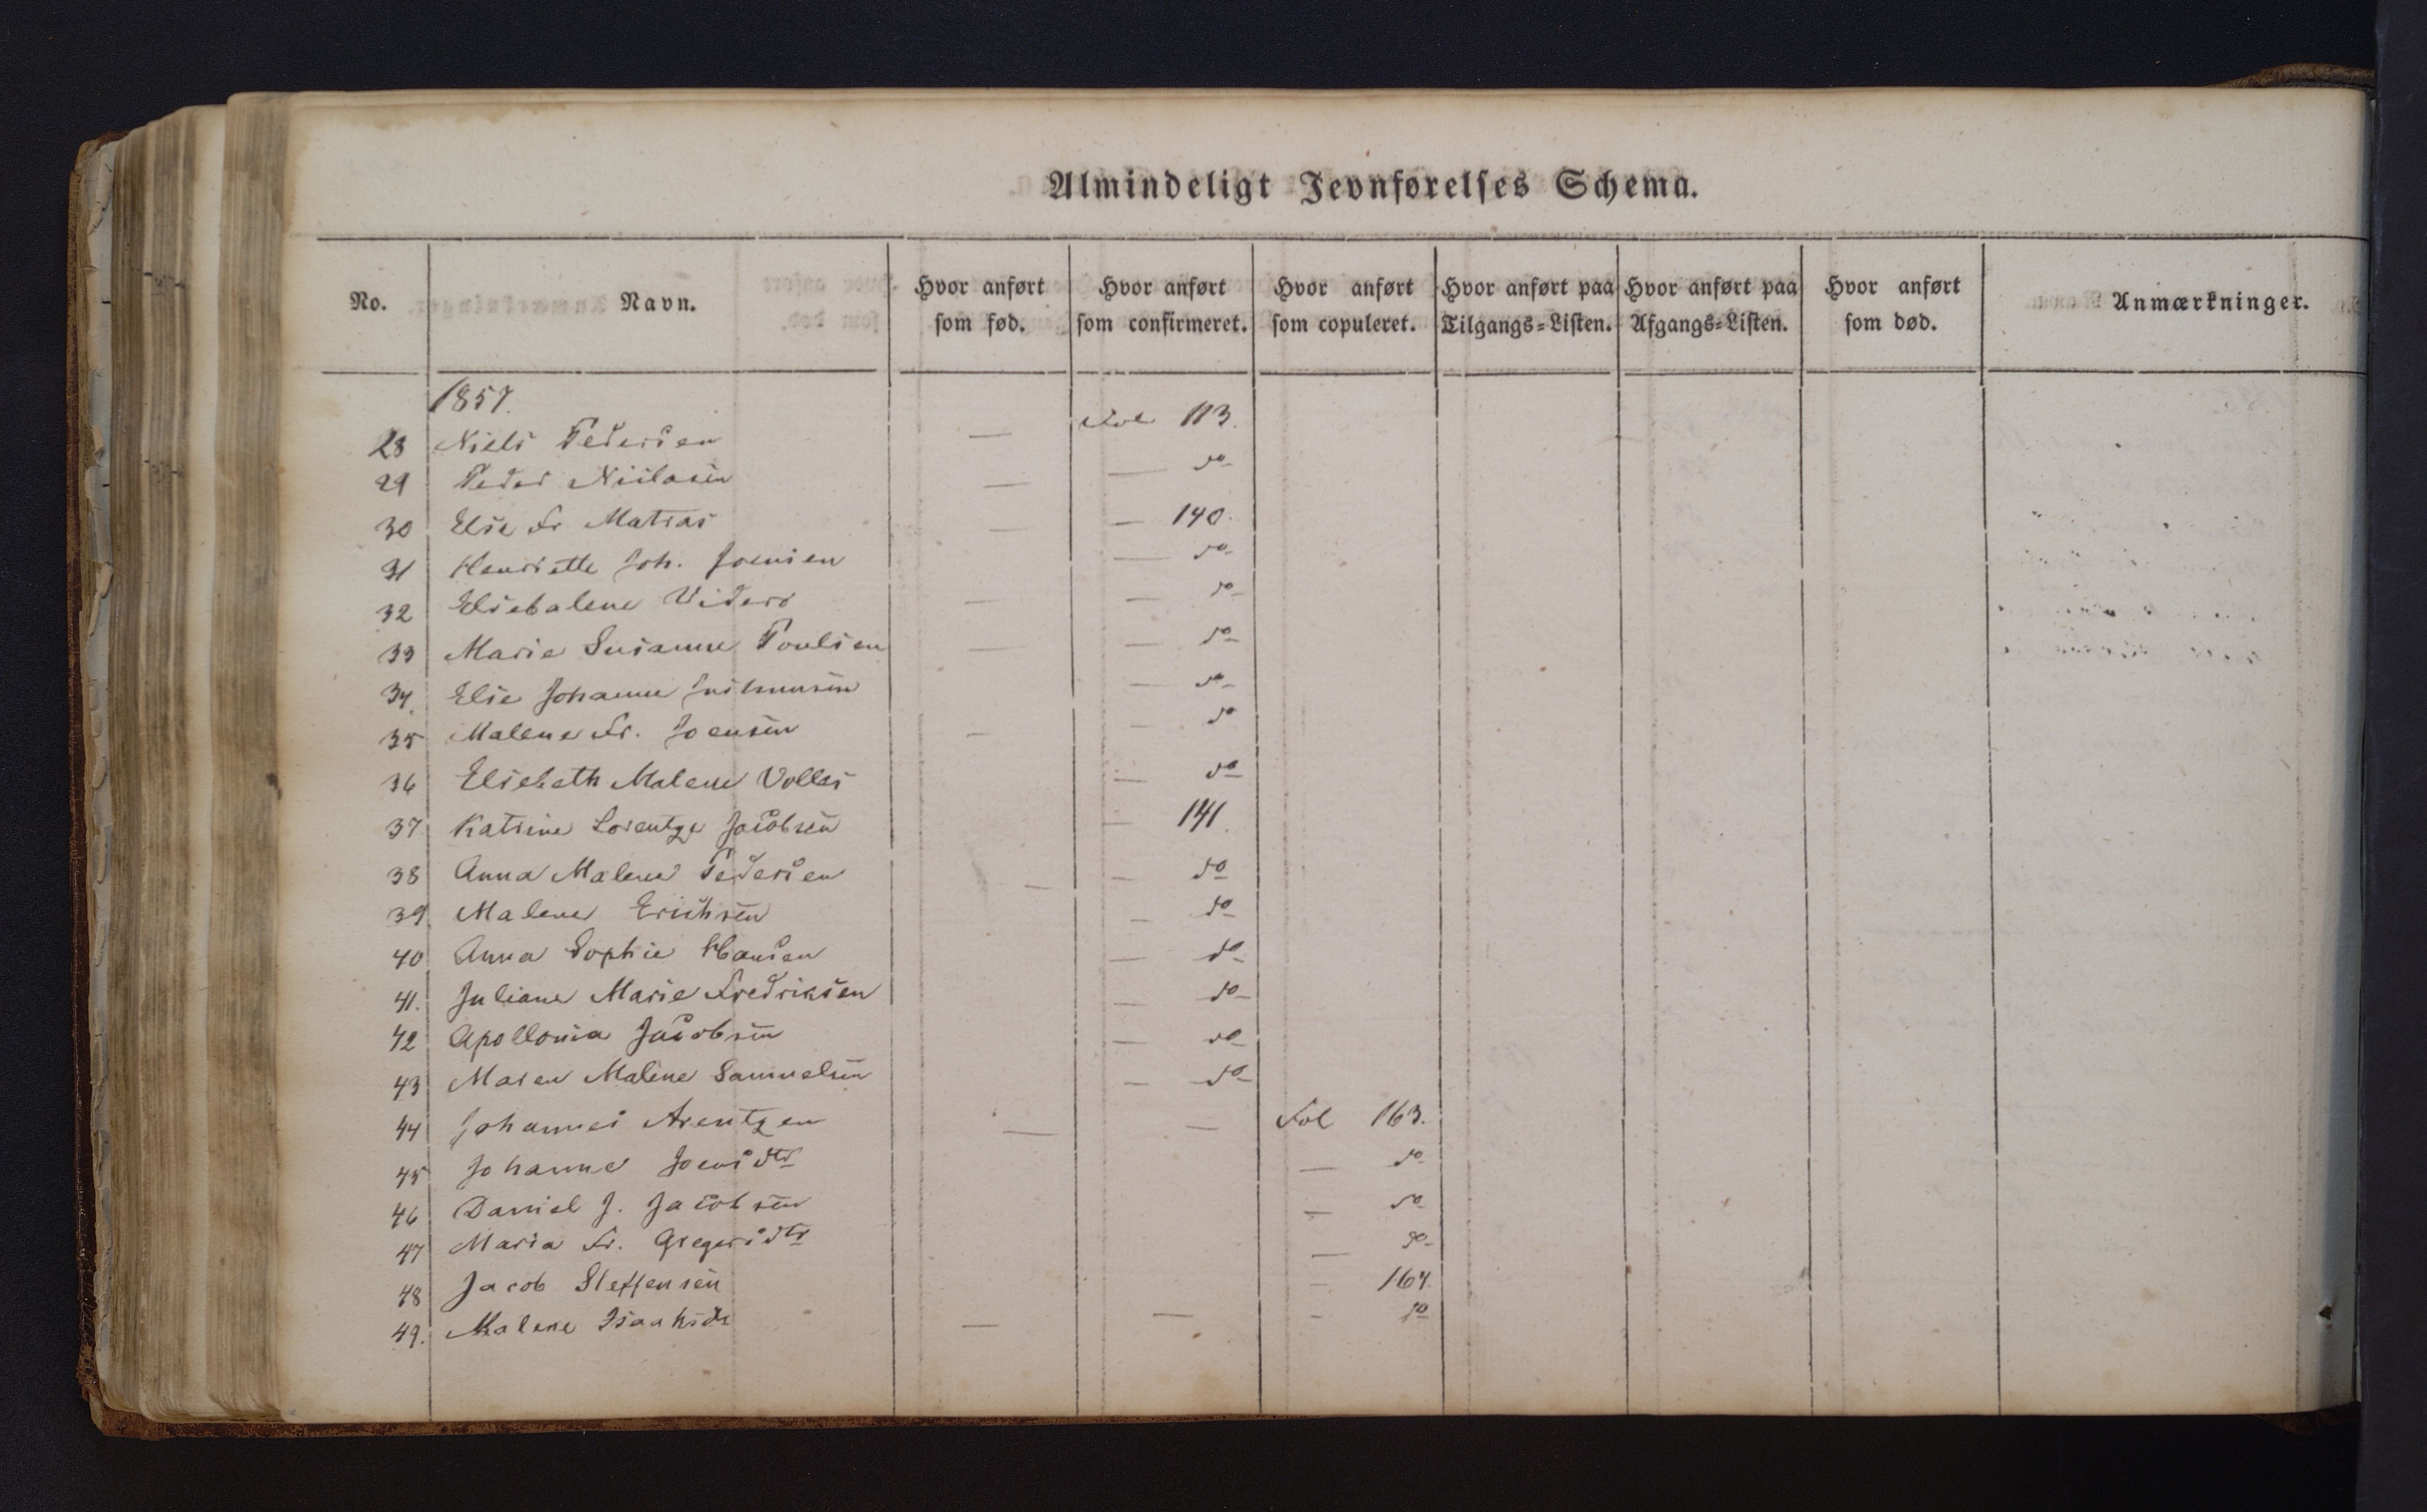 Almindeligt Jevnførelses Schema.
No. Navn. Hvor anført som fød. Hvor anført som confirmeret. Hvor anført som copuleret. Hvor anført paa Tilgangs-Listen. Hvor anført paa Afgangs-Listen. Hvor anført som død. Anmærkninger.
1857.
28 Niels Pedersen — Fol 113.
29 Peder Niilasen — — do
30 Else Fr Matras — — 140.
31 Henriette Joh. Joensen — do
32 Elsebalene Viderø — — do
33 Marie Susanne Poulsen — — do
34. Else Johanne — do
35 Malene Fr. Joensen — — do
36 Elsebeth Malene Volles — do
37. Katrine Lorentze Jacobsen — 141.
38 Anna Malene Pedersen — — do
39. Malene Erichsen — do
40 Anna Sophie Hansen — do
41. Juliane Marie Fredriksen — do
42 Apollonia Jacobsen — do
43 Maren Malene Samuelsen — do
44 Johannes Arentzen — — Fol 163.
45 Johanne Joensdtr — do
46 Daniel J. Jacobsen — do
47 Maria Fr. Gregersdtr — do
48 Jacob Steffensen — 164.
49. Malene Isaaksdr — — — do